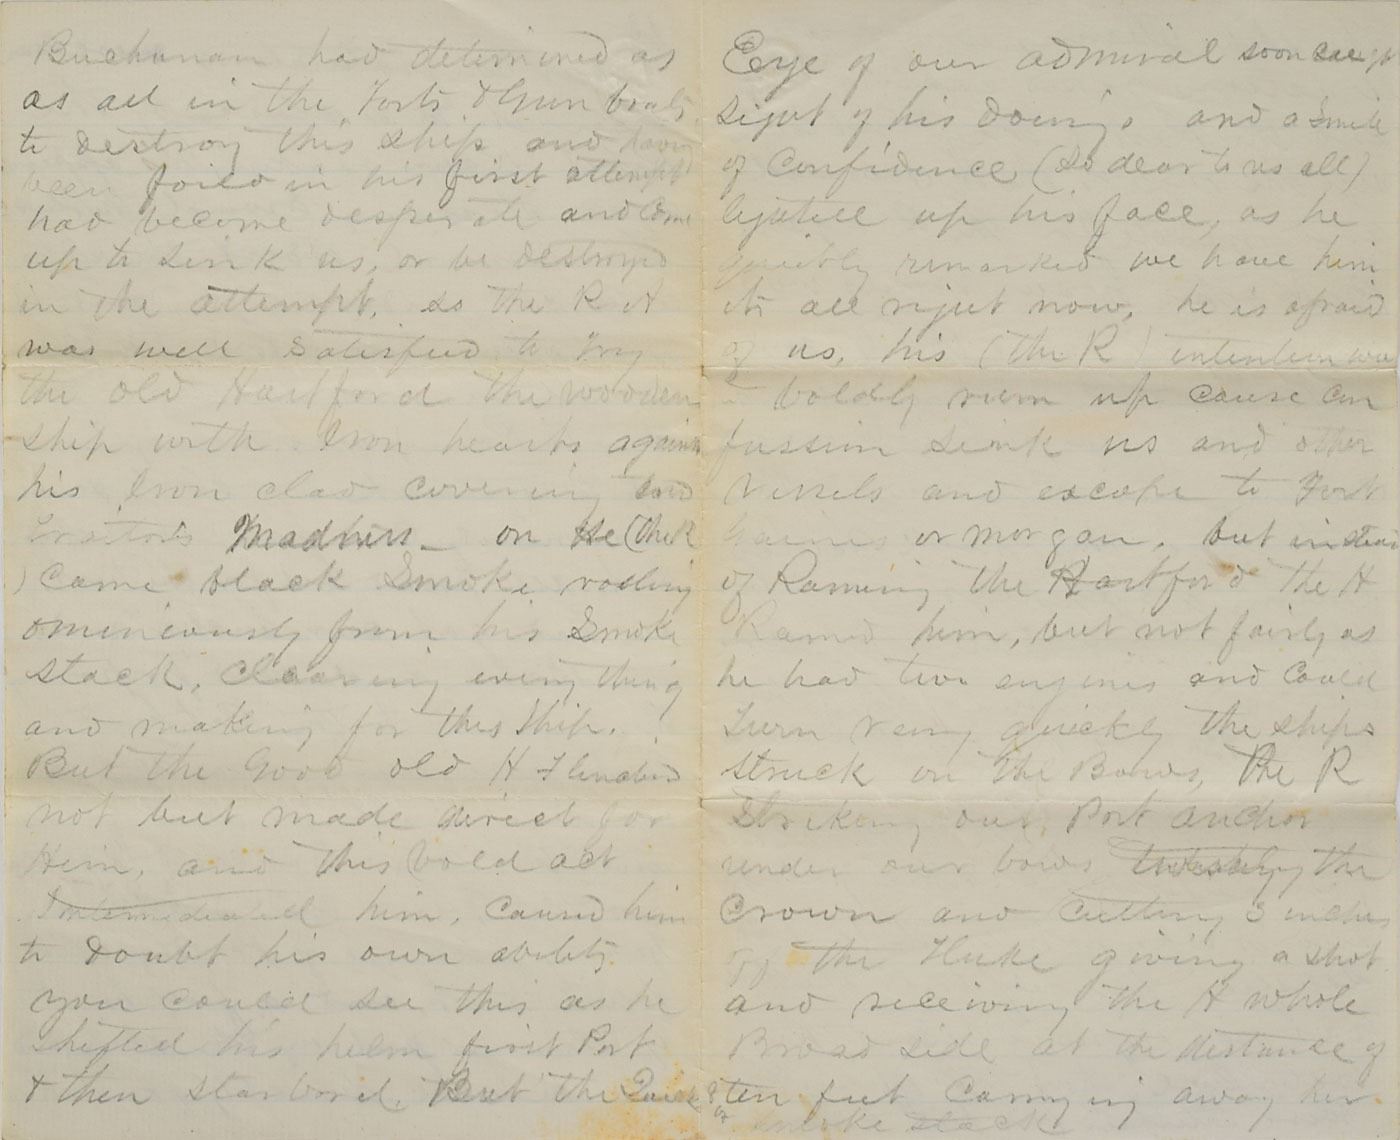 Buchanan had determined as
as all in the Forts & Gun boats
to destroy this ship and having
been foiled in his first attempt
had become desperate and come
up to sink us, or be destroyed
in the attempt. so the R A
was well satisfied to try
the old Hartford the wooden
ship with Iron hearts against
his Iron clad covering and
Traitors Madness_ on He (the R
) Came black Smoke rolling
ominiously from his Smoke
stack, clearing every thing
and making for this ship.
But the Good old H flinched
not but made direct for
Him, and this bold act
Intemediated him, caused him
to doubt his own ability
you could see this as he
shifted his helm first Port
& then starbord. But the Quick
Eye of our admiral soon caught
sight of his doings and a smile
of Confidence (so dear to us all)
lighted up his face, as he
quickly remarked we have him
its all right now, he is afraid
of us, his (the R) intention was
to boldly rum up cause con
fussion sink us and other
vessels and escape to Fort
Gaines or morgan. but instead
of Raming the Hartford the H
Ramed him, but not fairly as
he had two engines and could
Turn very quickly the ships
struck on the Bows, The R
Striking our Port anchor
under our bows the
Crown and Cutting 3 inches
off the Fluke giving a shot
and receiving the H whole
Broad side at the distance of
ten feet Carrying away her
smoke stack